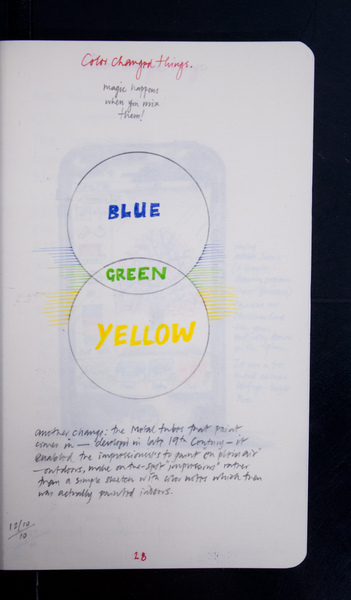 Color changed things.
magic happens
when you mix
them!
BLUE
GREEN
YELLOW
another change: the metal tubes that paint
comes in — develop'd in late 19th Century — it
enabled the impressionists to paint en plein air
— outdoors, make on-the-spot "impressions" rather
than a simple sketch with color notes which then
was actually painted indoors.
12/10
10
28